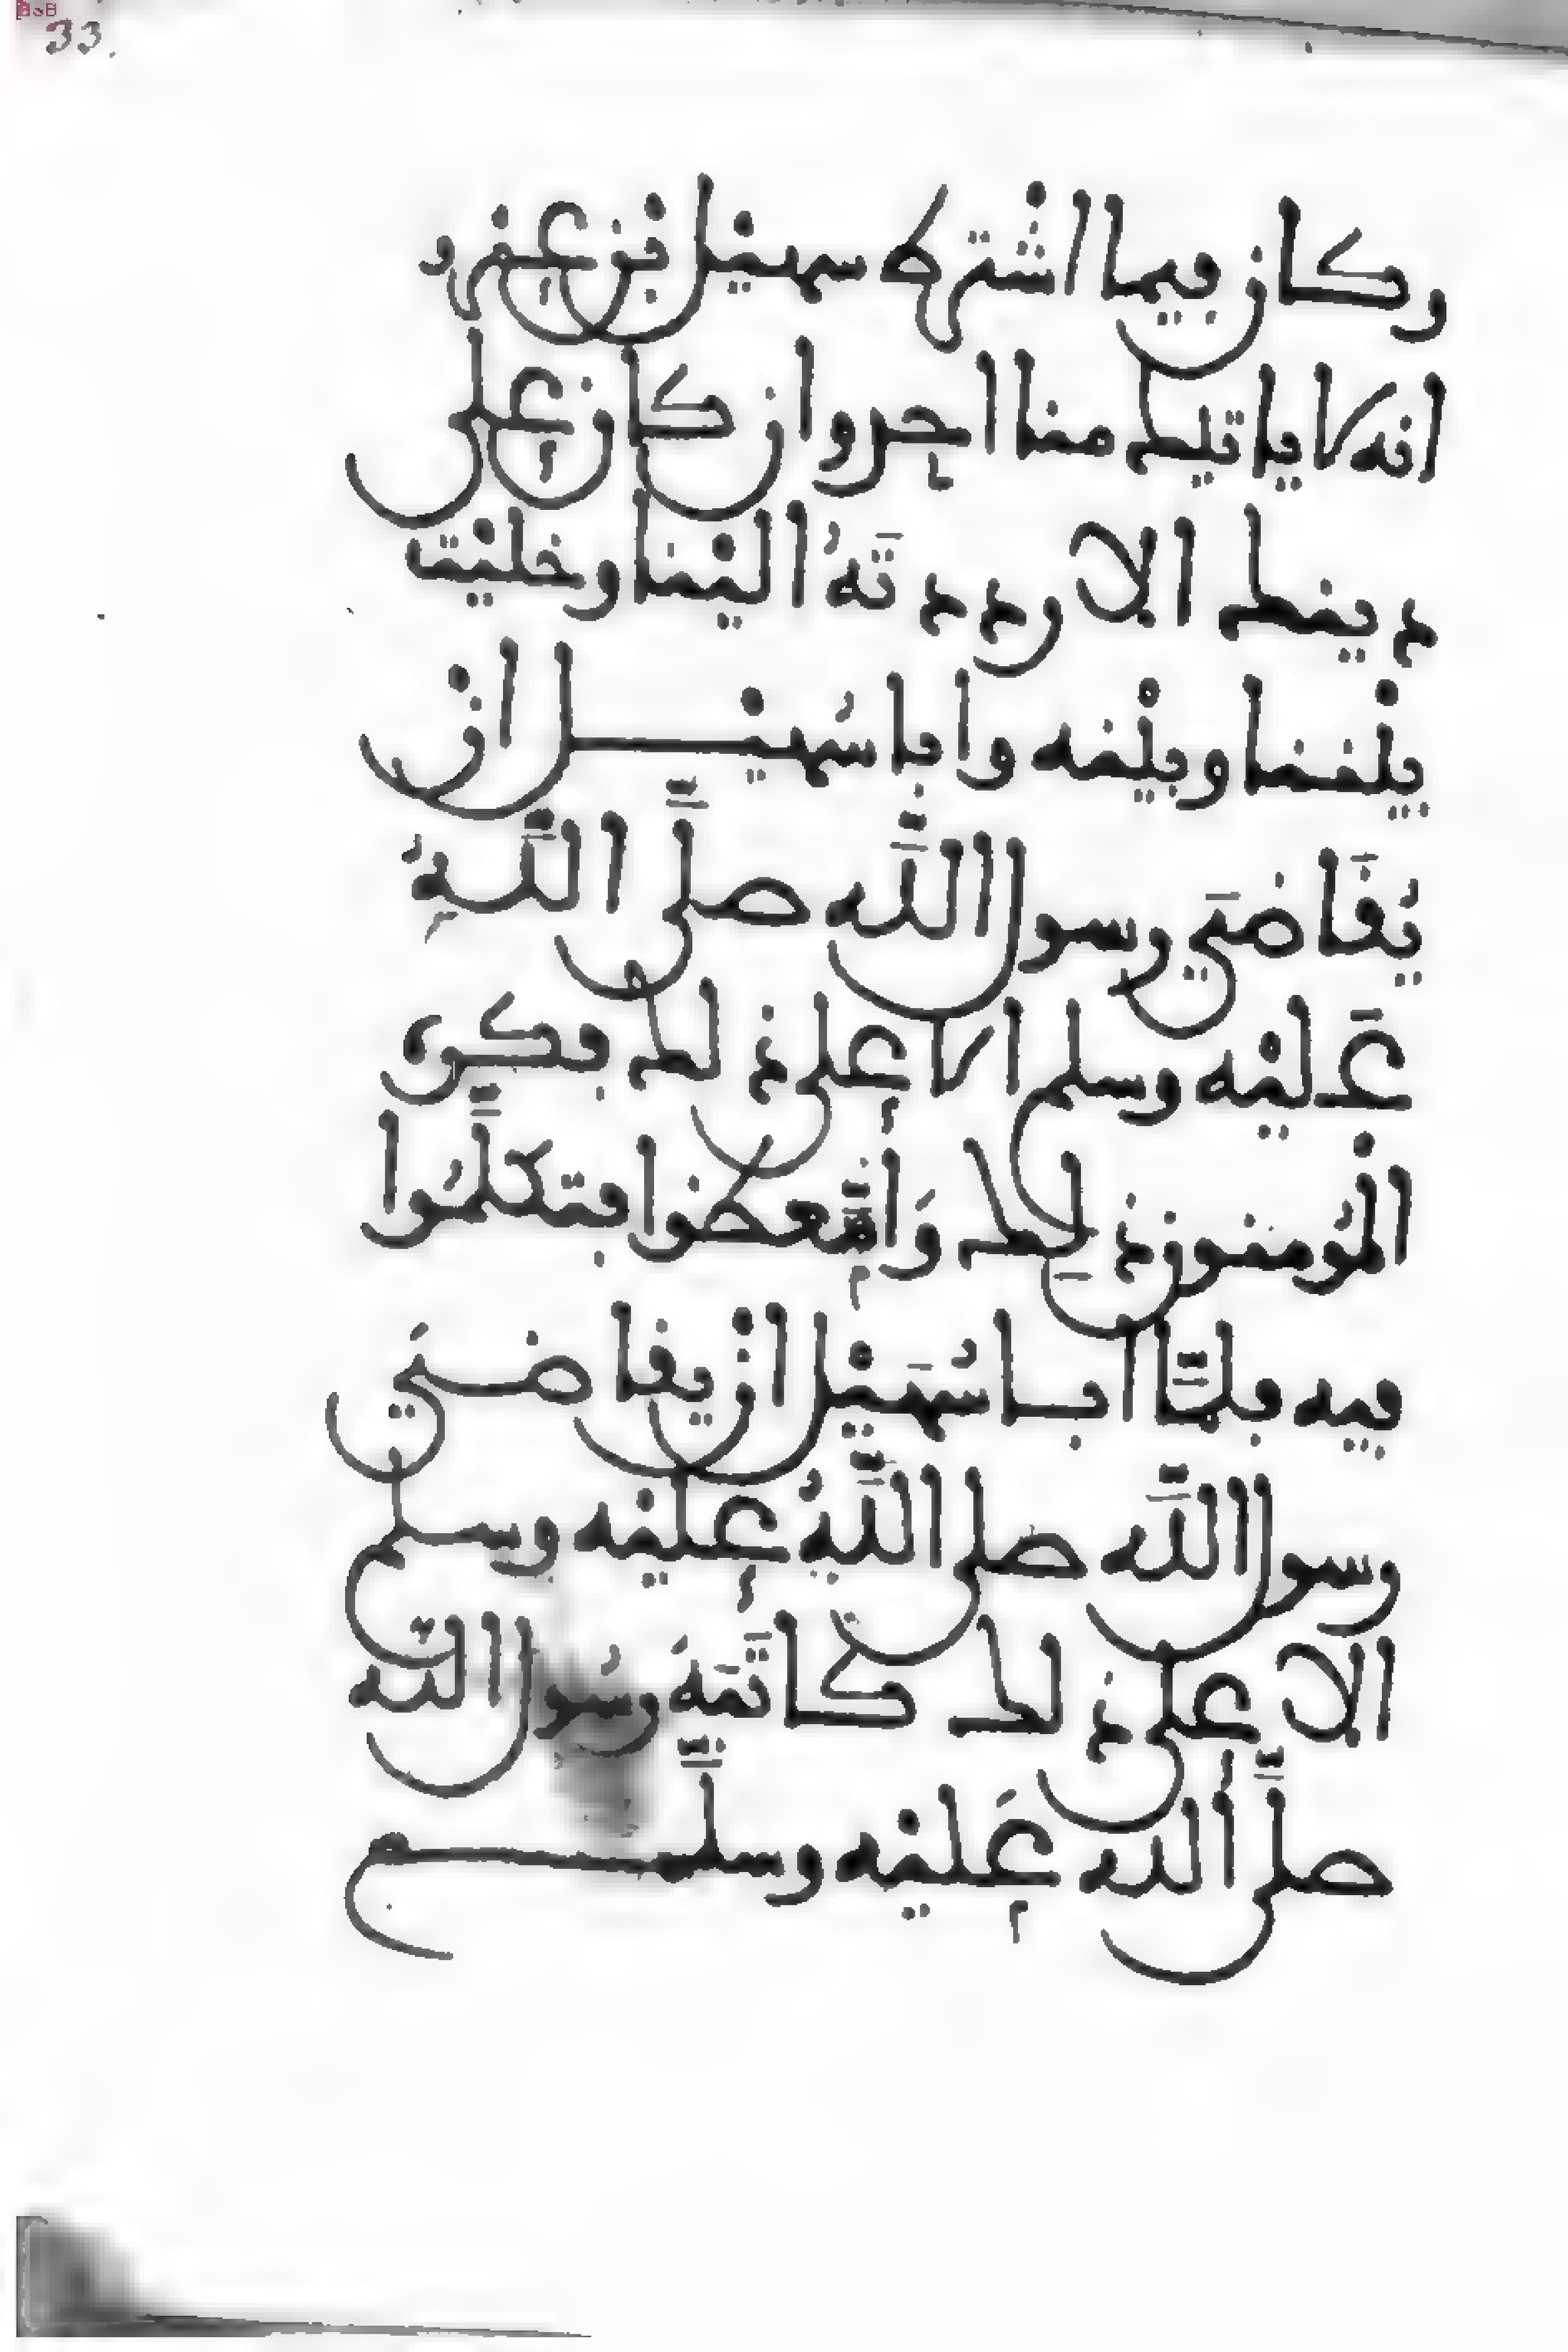 33.
وكان فيما اشترط سهيل بن عمرو
انه لا ياتيك منا احد وان كان على
دينك الا رددتَهُ اليْنا وخليْت
بيْننا وبيْنه وابا سُهيْل ان
يُقَاضَي رسول اللَّه صلَّى اللَّهُ
عَليْه وسلم الا على ذلك فكره
المُومنون ذلك وَامَّعضوا فتكلَّمُوا
فيه فلمَّا ابا سُهَيْل ان يقاضيَ
رسول اللَّه صلى اللَّهُ عليْه وسلم
الا على ذلك كاتَبَهُ رسُول اللَّه
صلَّى الله عَليْه وسلَّم